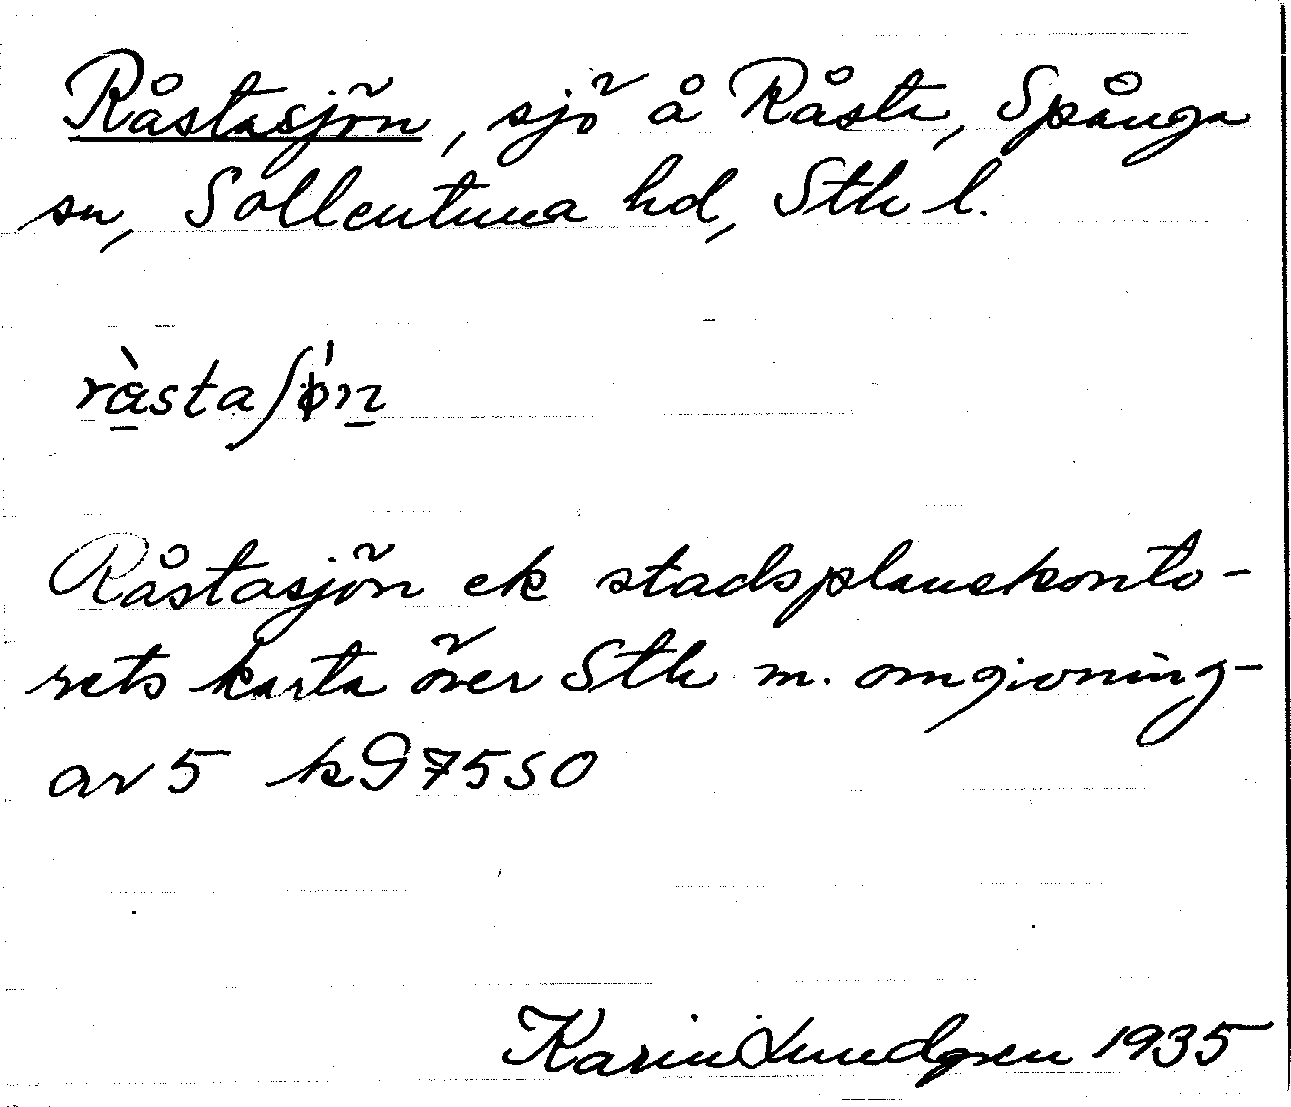 Råstasjön, sjö å Råsta, Spånga
sn, Sollentuna hd, Sth l.
ràstaʃø̍n
Råstasjön ek stadsplanekonto-
rets karta över Sth m. omgivning-
ar 5 k 97550
Karin Lundgren 1935